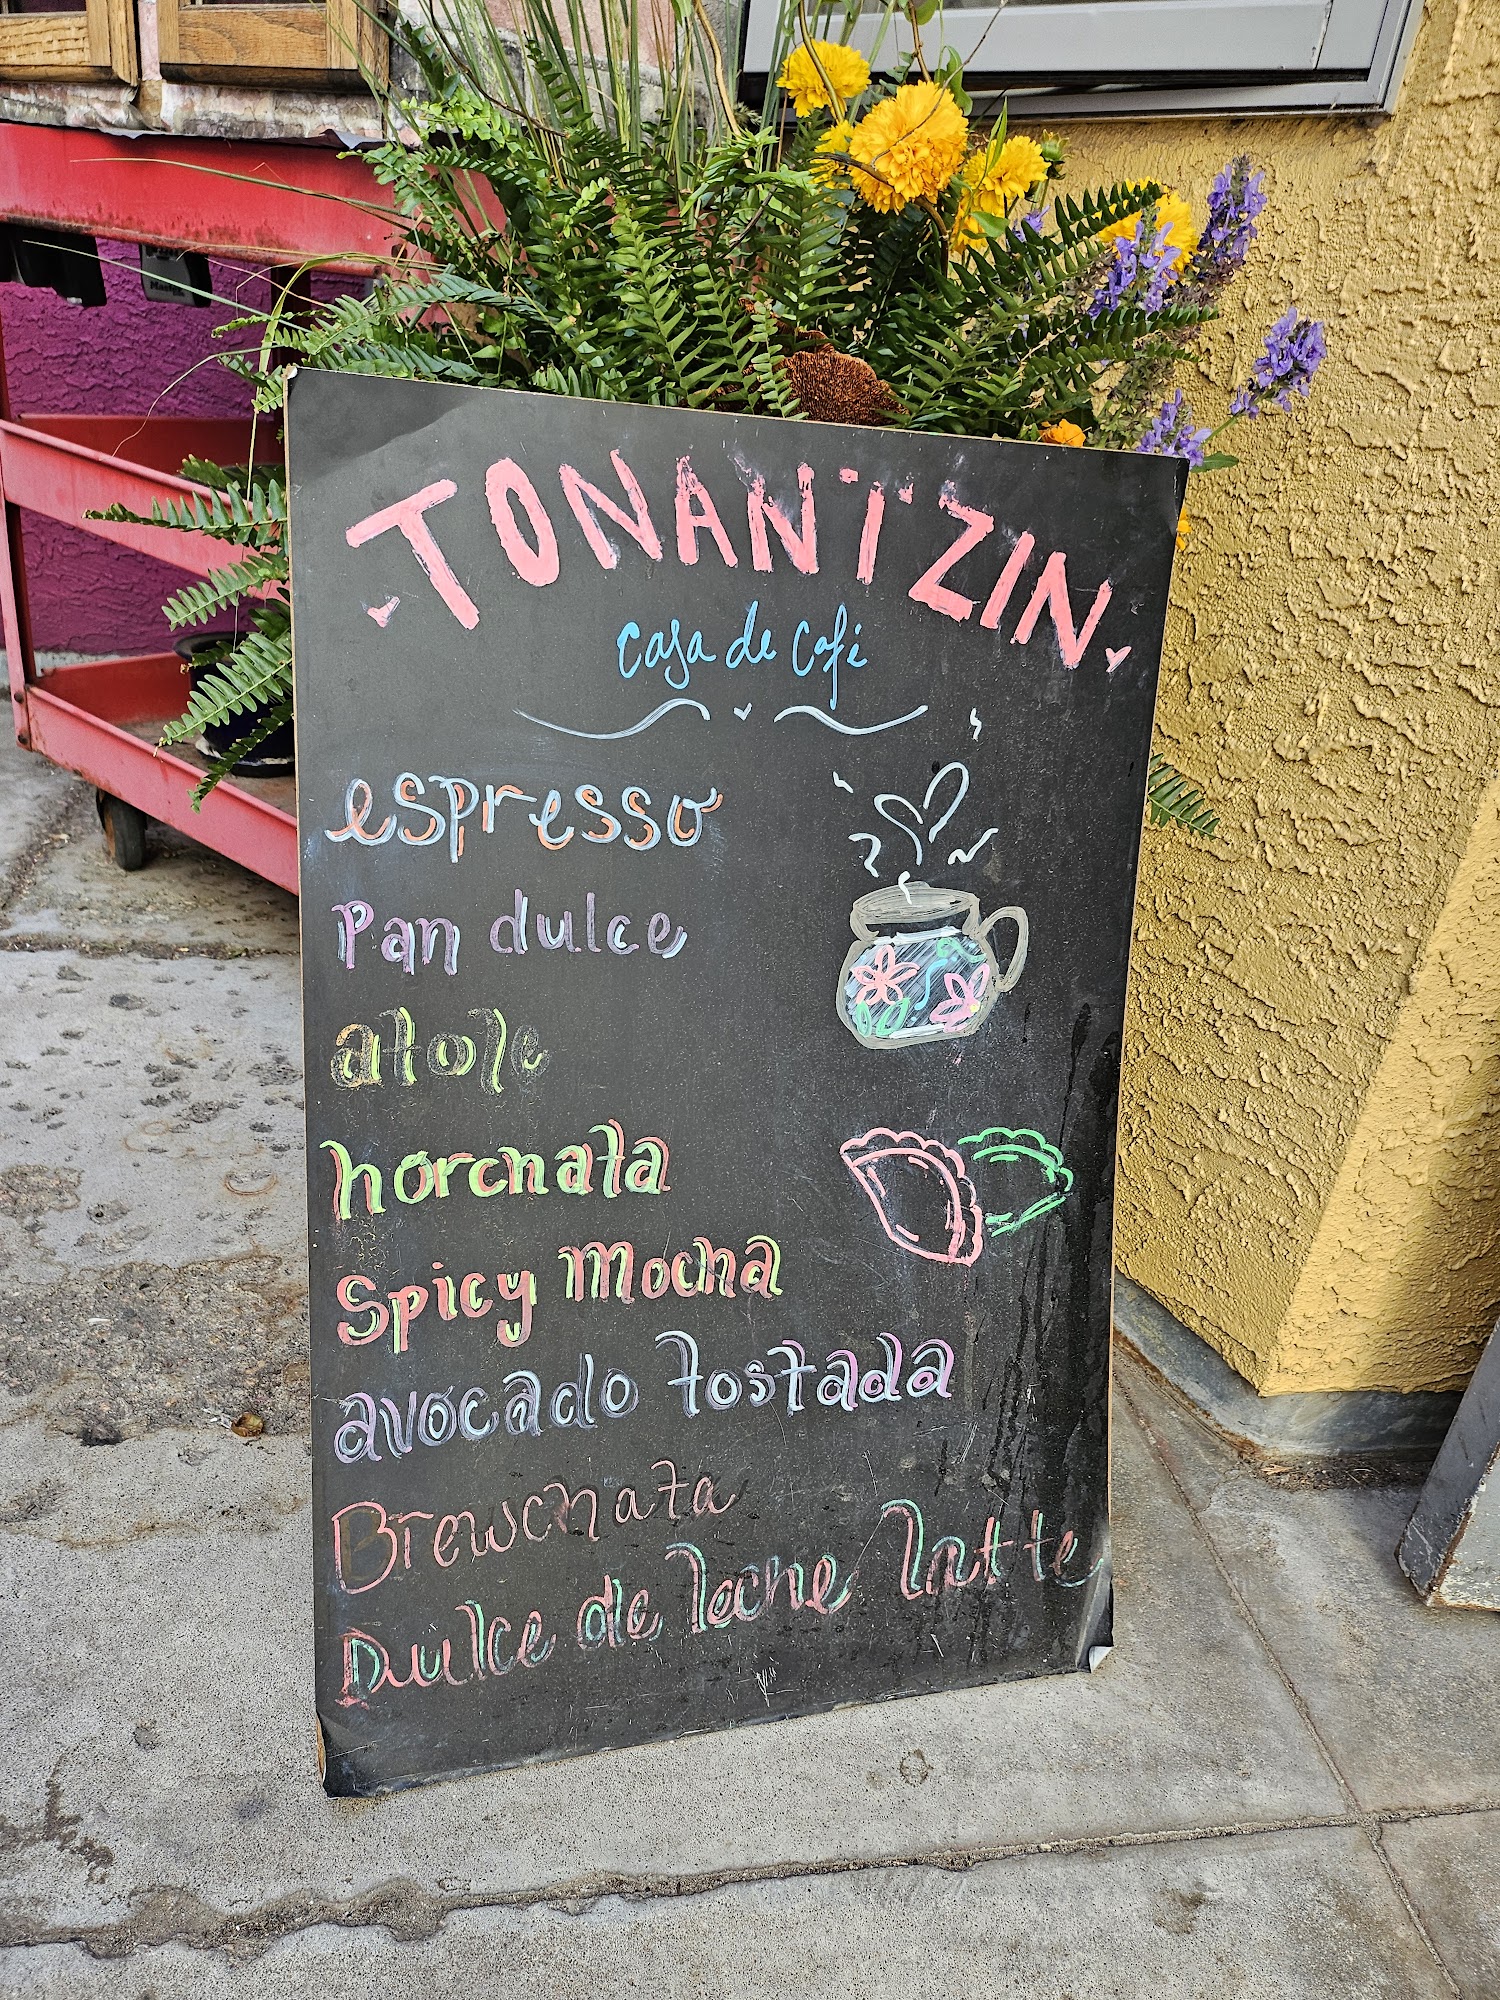 TONANTZIN
Casa de Café
espresso
Pan dulce
atole
horchata
Spicy Mocha
avocado tostada
Brewchata
Dulce de leche latte